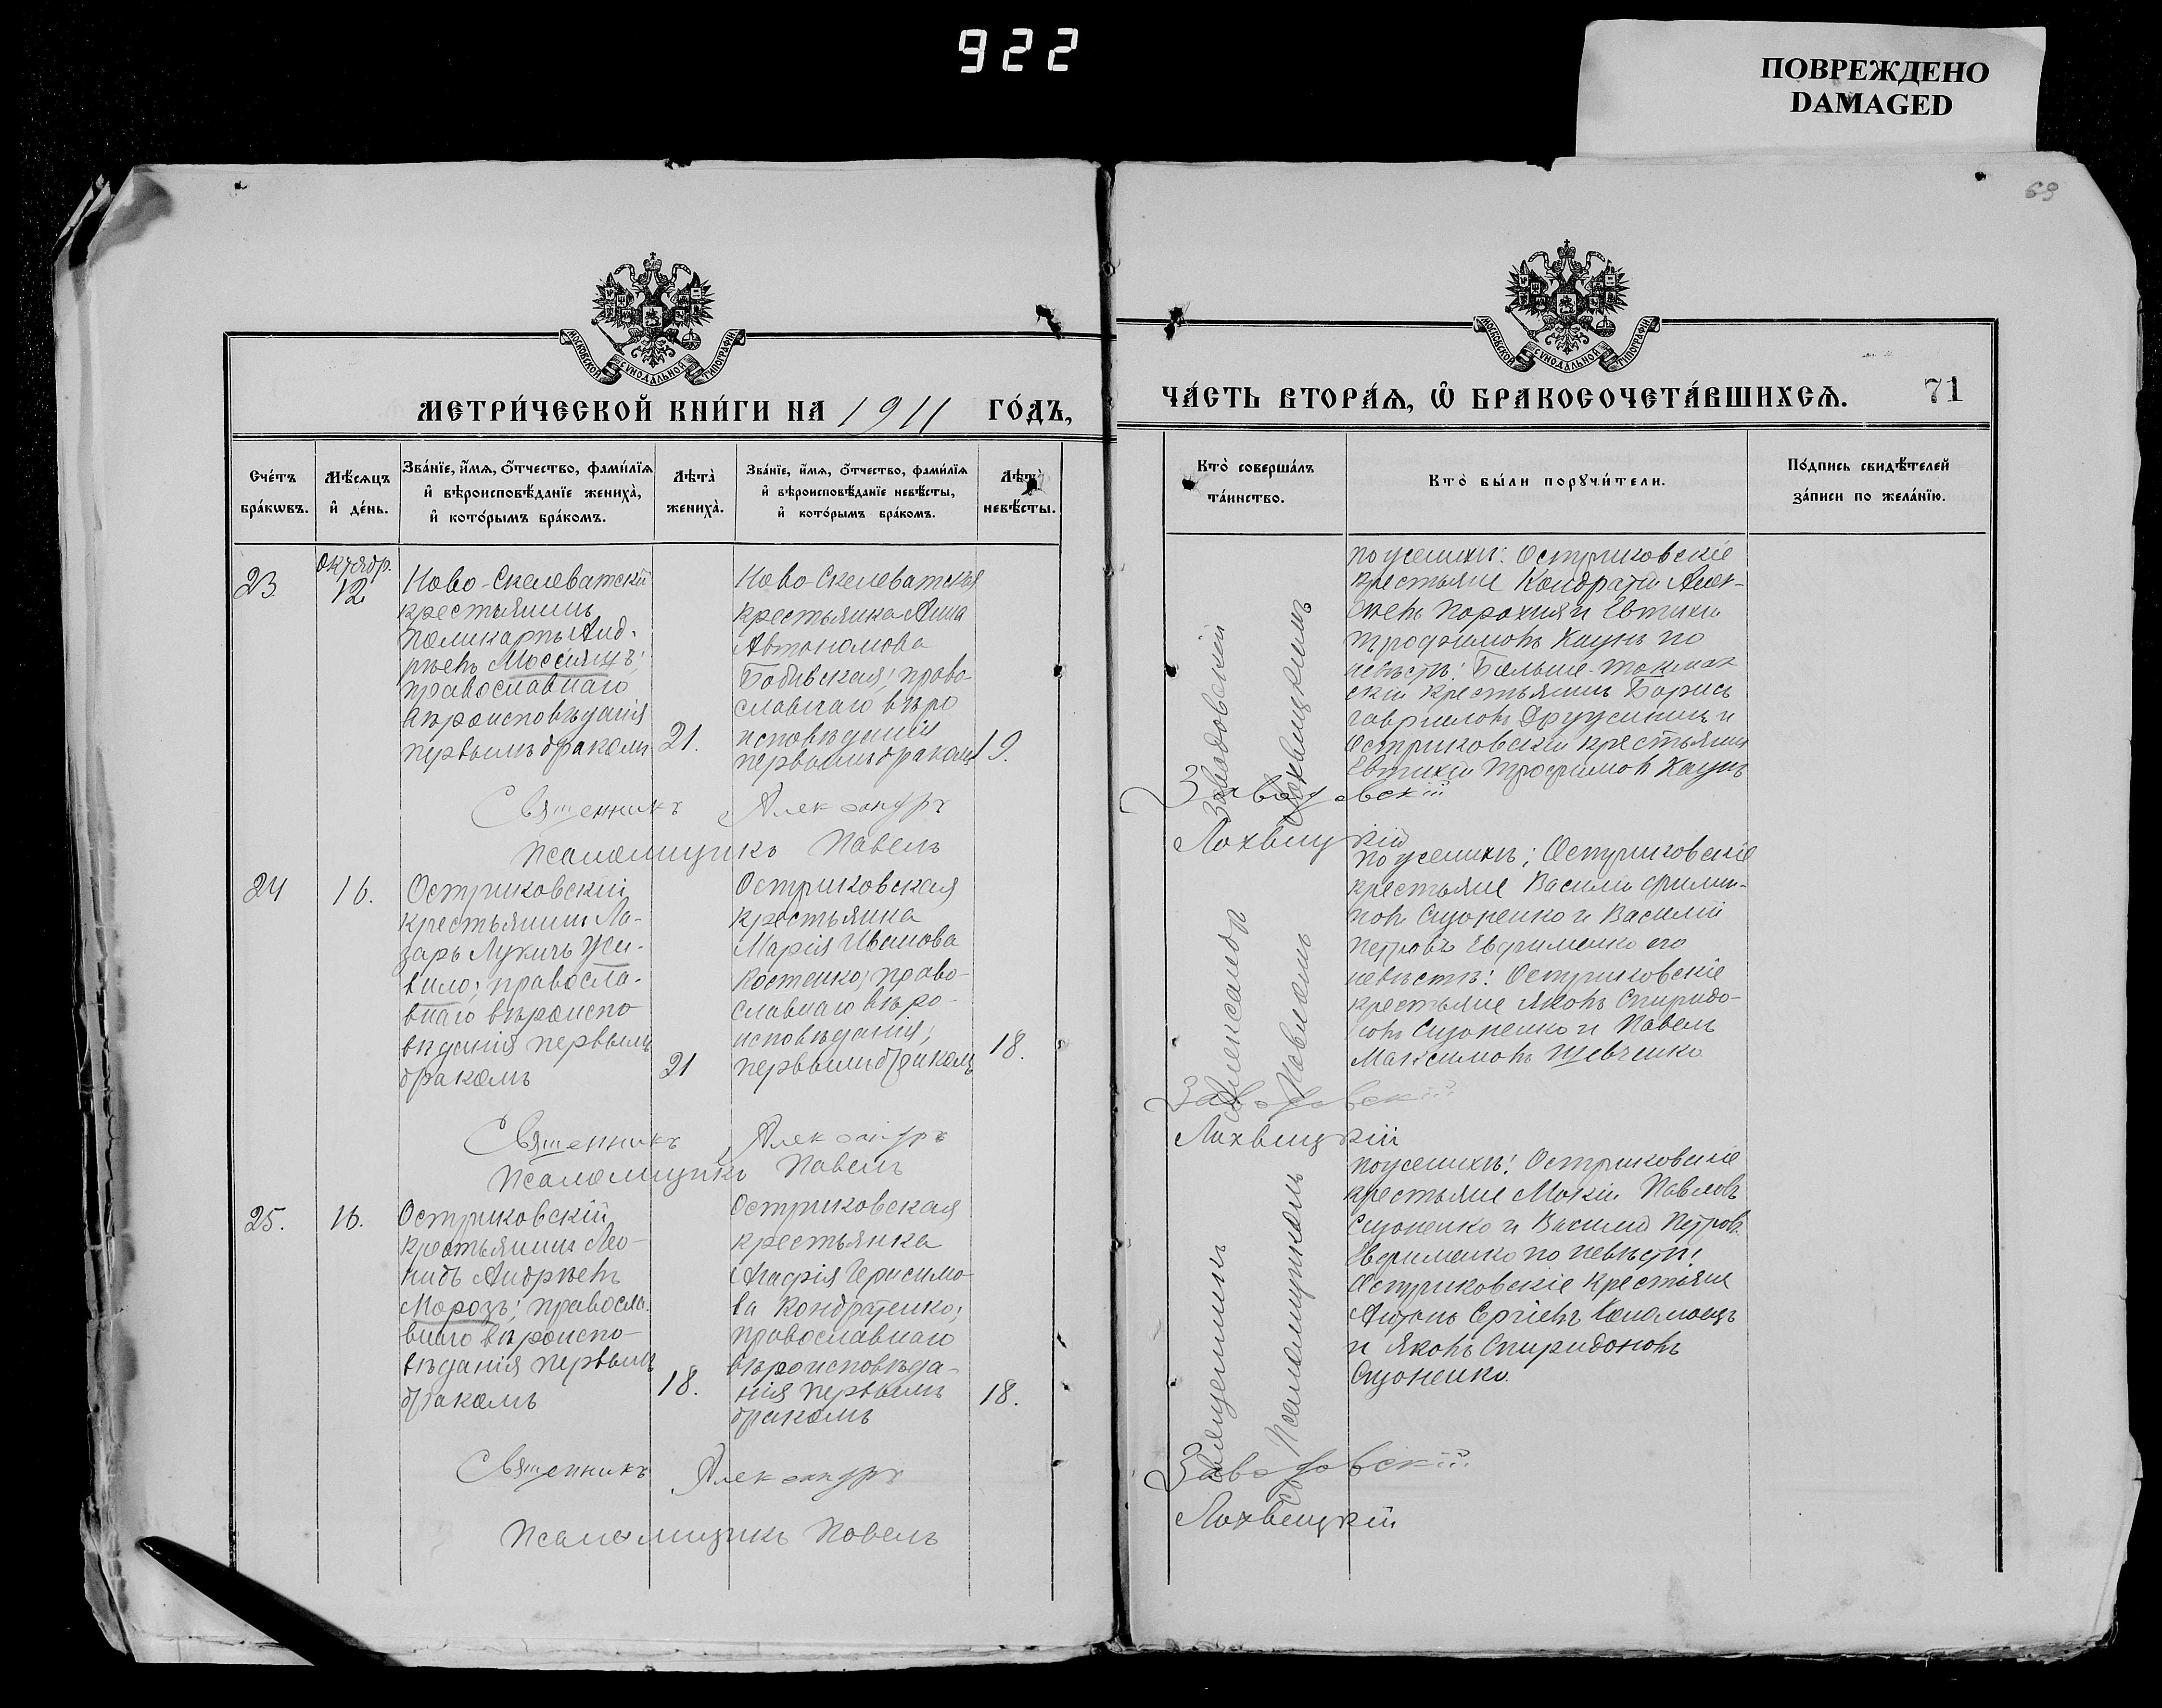 922
ПОВРЕЖДЕНО
DAMAGED
69
МОСКОВСКОЙ СѴНОДАЛЬНОЙ ТИПОГРАФІИ
МЕТРИ́ЧЕСКОЙ КНИ́ГИ НА 1911 ГО́ДЪ,
Сче́тъ бра́кѡвъ.
Мѣ́сѧцъ и҆ де́нь.
Зва́нїе, и҆́мѧ, ѻ҆́тчество, фами́лїѧ
и҆ вѣроисповѣ́данїе жениха̀,
и҆ кото́рымъ бра́комъ.
Лѣта̀ жениха̀.
Зва́нїе, и҆́мѧ, ѻ҆́тчество, фами́лїѧ
и҆ вѣроисповѣ́данїе невѣ́сты,
и҆ кото́рымъ бра́комъ.
Лѣта̀ невѣ́сты.
23
Октябр.
12
Ново-Скелеватскій
крестьянинъ
Поликарпъ Анд-
реевъ Моссіянцъ;
православнаго
вѣроисповѣданія
первымъ бракомъ
21.
Ново-Скелеватская
крестьянка Анна
Автономова
Бабѣвская; право-
славнаго вѣро
исповѣданія
первымъ бракомъ
19.
Священникъ Александръ
Псаломщикъ Павелъ
24
16.
Остриковскій
крестьянинъ Ла-
зарь Лукичъ Жи-
вило; правосла-
внаго вѣроиспо
вѣданія первымъ
бракомъ
21
Остриковская
крестьянка
Марія Иванова
Костенко; право-
славнаго вѣро-
исповѣданія;
первымъ бракомъ
18.
Священникъ Александръ
Псаломщикъ Павелъ
25.
16.
Остриковскій
крестьянинъ Лео-
нидъ Андреевъ
Морозъ; правосла-
внаго вѣроиспо-
вѣданія первымъ
бракомъ
18.
Остриковская
крестьянка
Агафія Герасимо-
ва Кондратенко;
православнаго
вѣроисповѣда-
нія первымъ
бракомъ
18.
Священникъ Александръ
Псаломщикъ Павелъ
МОСКОВСКОЙ СѴНОДАЛЬНОЙ ТИПОГРАФІИ
ЧА́СТЬ ВТОРА́Ѧ, Ѽ БРАКОСОЧЕТА́ВШИХСѦ.
71
Кто̀ соверша́лъ
та́инство.
Кто̀ бы́ли порꙋчи́тели.
По́дпись свидѣ́телей
за́писи по жела́нїю.
Священникъ Александръ Заводовскій
Псаломщикомъ Павломъ Лохвицкимъ
по женихѣ: Остриковскіе
крестьяне Кондратій Алек-
сѣевъ Порохня и Евтихій
Трофимовъ Каунъ по
невѣстѣ: Больше-Токмак
скій крестьянинъ Борисъ
Гавриловъ и
Остриковскій крестьянинъ
Евтихій Трофимовъ Каунъ
Заводовскій
Лохвицкій
по женихѣ; Остриковскіе
крестьяне Василій Филип-
повъ Сизоненко и Василій
Петровъ Евфименко по
невѣстѣ: Остриковскіе
крестьяне Яковъ Спиридо-
новъ Сизоненко и Павелъ
Максимовъ Шевченко
Заводовскій
Лохвицкій
по женихѣ: Остриковскіе
крестьяне Мокій Павловъ
Сизоненко и Василій Петровъ
Евфименко по невѣстѣ:
Остриковскіе крестьяне
Антонъ Сергіевъ Коломоецъ
и Яковъ Спиридоновъ
Сизоненко.
Заводовскій
Лохвицкій